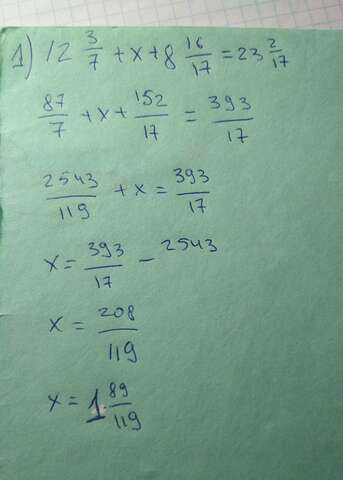 1) 12 3/7 + x + 8 16/17 = 23 2/17
87/7 + x + 152/17 = 393/17
2543/119 + x = 393/17
x = 393/17 - 2543
x = 208/119
x = 1 89/119